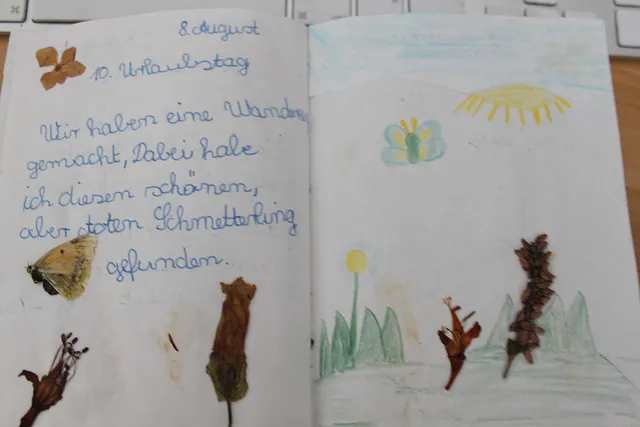 8. August
10. Urlaubstag
Wir haben eine Wander
gemacht, Dabei habe
ich diesen schönen,
aber toten Schmetterling
gefunden.